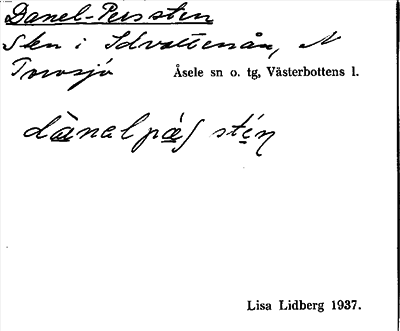 Danel-Persten
Skn i Idvattenån, N
Torvsjö Åsele sn o. tg, Västerbottens l.
dànalpæʃ sté̩n
Lisa Lidberg 1937.